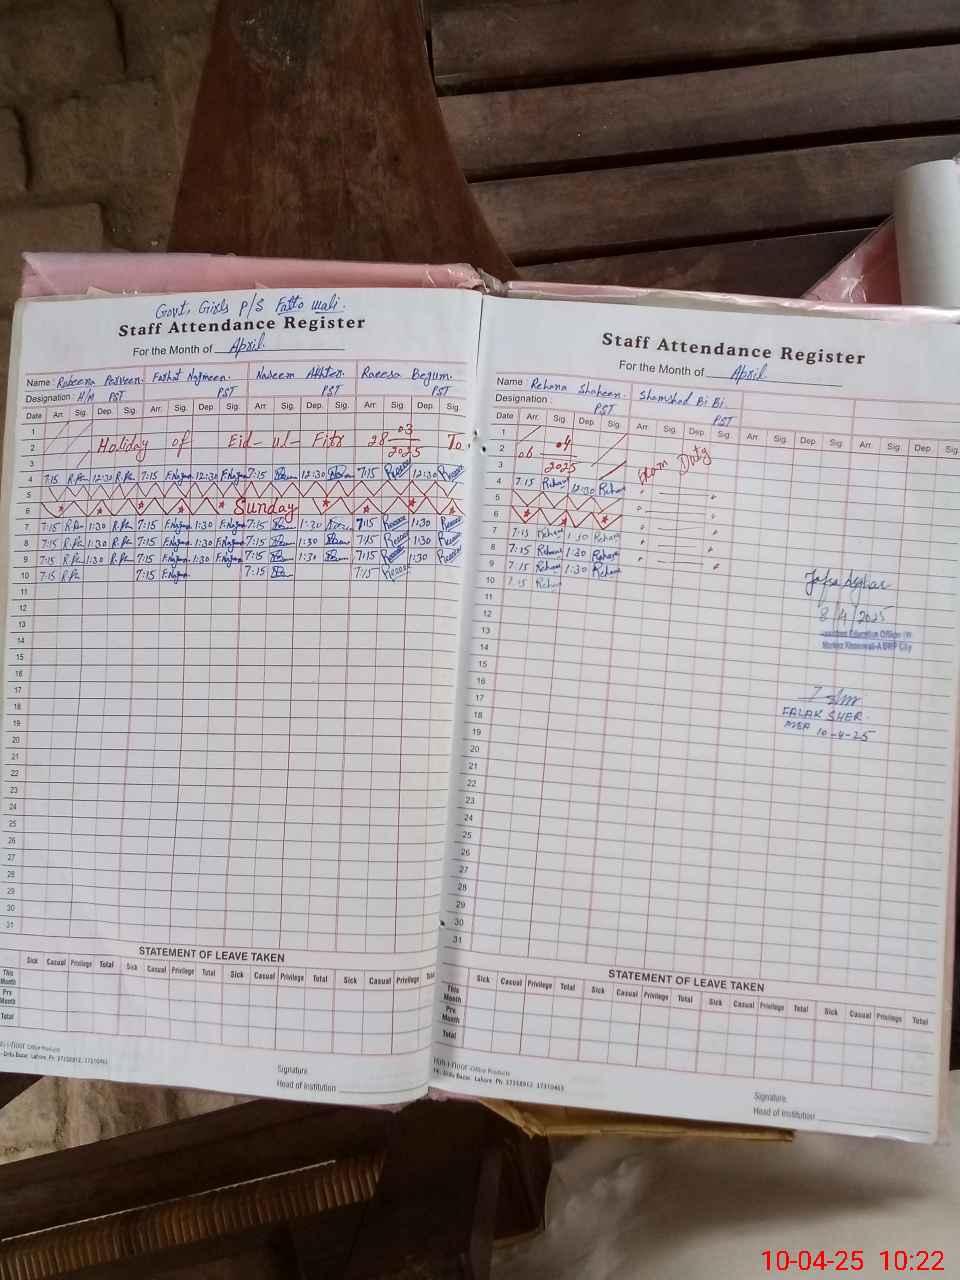 Govt, Girls P/S Fatto wali.
Staff Attendance Register
For the Month of April.
Name : Robeena Parveen. Farhat Najmeen. Naseem Akhter. Raeesa Begum.
Designation : H/M PST PST PST PST
Date Arr. Sig. Dep. Sig. Arr. Sig. Dep. Sig. Arr. Sig. Dep. Sig. Arr. Sig. Dep. Sig.
1
2 Holiday of Eid-ul-Fitr 28-03-2025 To
3
4 7:15 R.Pn 12:30 R.Pn 7:15 F.Najm 12:30 F.Najm 7:15 12:30 7:15 12:30
5
6 Sunday
7 7:15 R.Pn 1:30 R.Pn 7:15 F.Najm 1:30 F.Najm 7:15 1:30 7:15 1:30
8 7:15 R.Pn 1:30 R.Pn 7:15 F.Najm 1:30 F.Najm 7:15 1:30 7:15 1:30
9 7:15 R.Pn 1:30 R.Pn 7:15 F.Najm 1:30 F.Najm 7:15 1:30 7:15 1:30
10 7:15 R.Pn 7:15 F.Najm 7:15 7:15
11
12
13
14
15
16
17
18
19
20
21
22
23
24
25
26
27
28
29
30
31
STATEMENT OF LEAVE TAKEN
Sick Casual Privilege Total Sick Casual Privilege Total Sick Casual Privilege Total Sick Casual Privilege Total
This Month
Pre Month
Total
Office Products
Urdu Bazar, Lahore. Ph: 37358912, 37310463
Signature
Head of Institution
Staff Attendance Register
For the Month of April
Name : Rehana Shaheen. Shamshad Bi Bi
Designation : PST PST
Date Arr. Sig. Dep. Sig. Arr. Sig. Dep. Sig. Arr. Sig. Dep. Sig. Arr. Sig. Dep. Sig.
1
2 06-04-2025 Exam Duty
3
4 7:15 Rehana 12:30 Rehana
5
6
7 7:15 Rehana 1:30 Rehana
8 7:15 Rehana 1:30 Rehana
9 7:15 Rehana 1:30 Rehana
10 7:15 Rehana
11
12
13
14
15
16
17
18
19
20
21
22
23
24
25
26
27
28
29
30
31
8/4/2025
Education Officer (W)
City
FALAK SHER.
MEA 10-4-25
STATEMENT OF LEAVE TAKEN
Sick Casual Privilege Total Sick Casual Privilege Total Sick Casual Privilege Total Sick Casual Privilege Total
This Month
Pre Month
Total
Office Products
Urdu Bazar, Lahore. Ph: 37358912, 37310463
Signature
Head of Institution
10-04-25 10:22